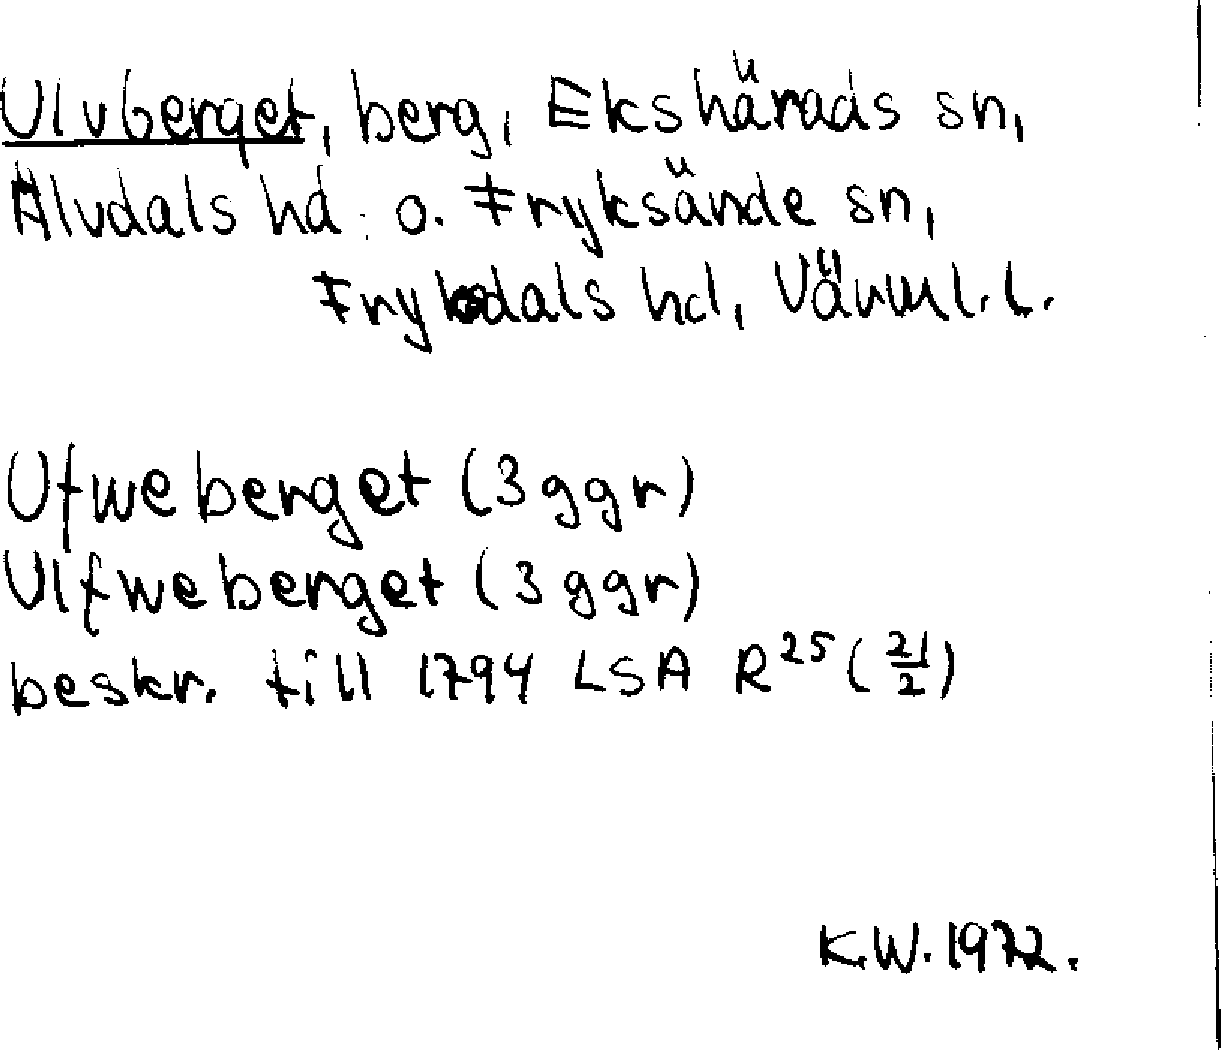 Ulvberget, berg, Ekshärads sn,
Älvdals hd. o. Fryksände sn,
Frykdals hd, Värml. l.
Ufweberget (3 ggr)
Ulfweberget (3 ggr)
beskr. till 1794 LSA R²⁵ (21/2)
K.W. 1972.